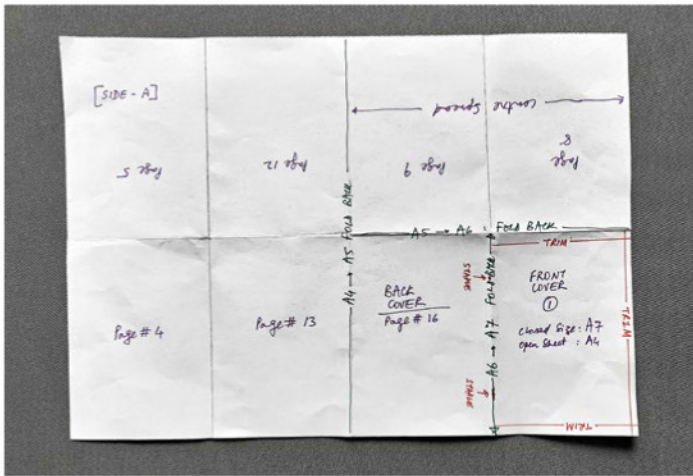 [SIDE - A]
Centre Spread
Page 5
Page 12
Page 9
Page
8
A4 → A5 FOLD BACK
A5 → A6 : FOLD BACK
Page # 4
Page # 13
BACK
COVER
Page # 16
STAPLE
STAPLE
A6 → A7 FOLD BACK
TRIM
FRONT
COVER
1
closed Size : A7
open Sheet : A4
TRIM
TRIM